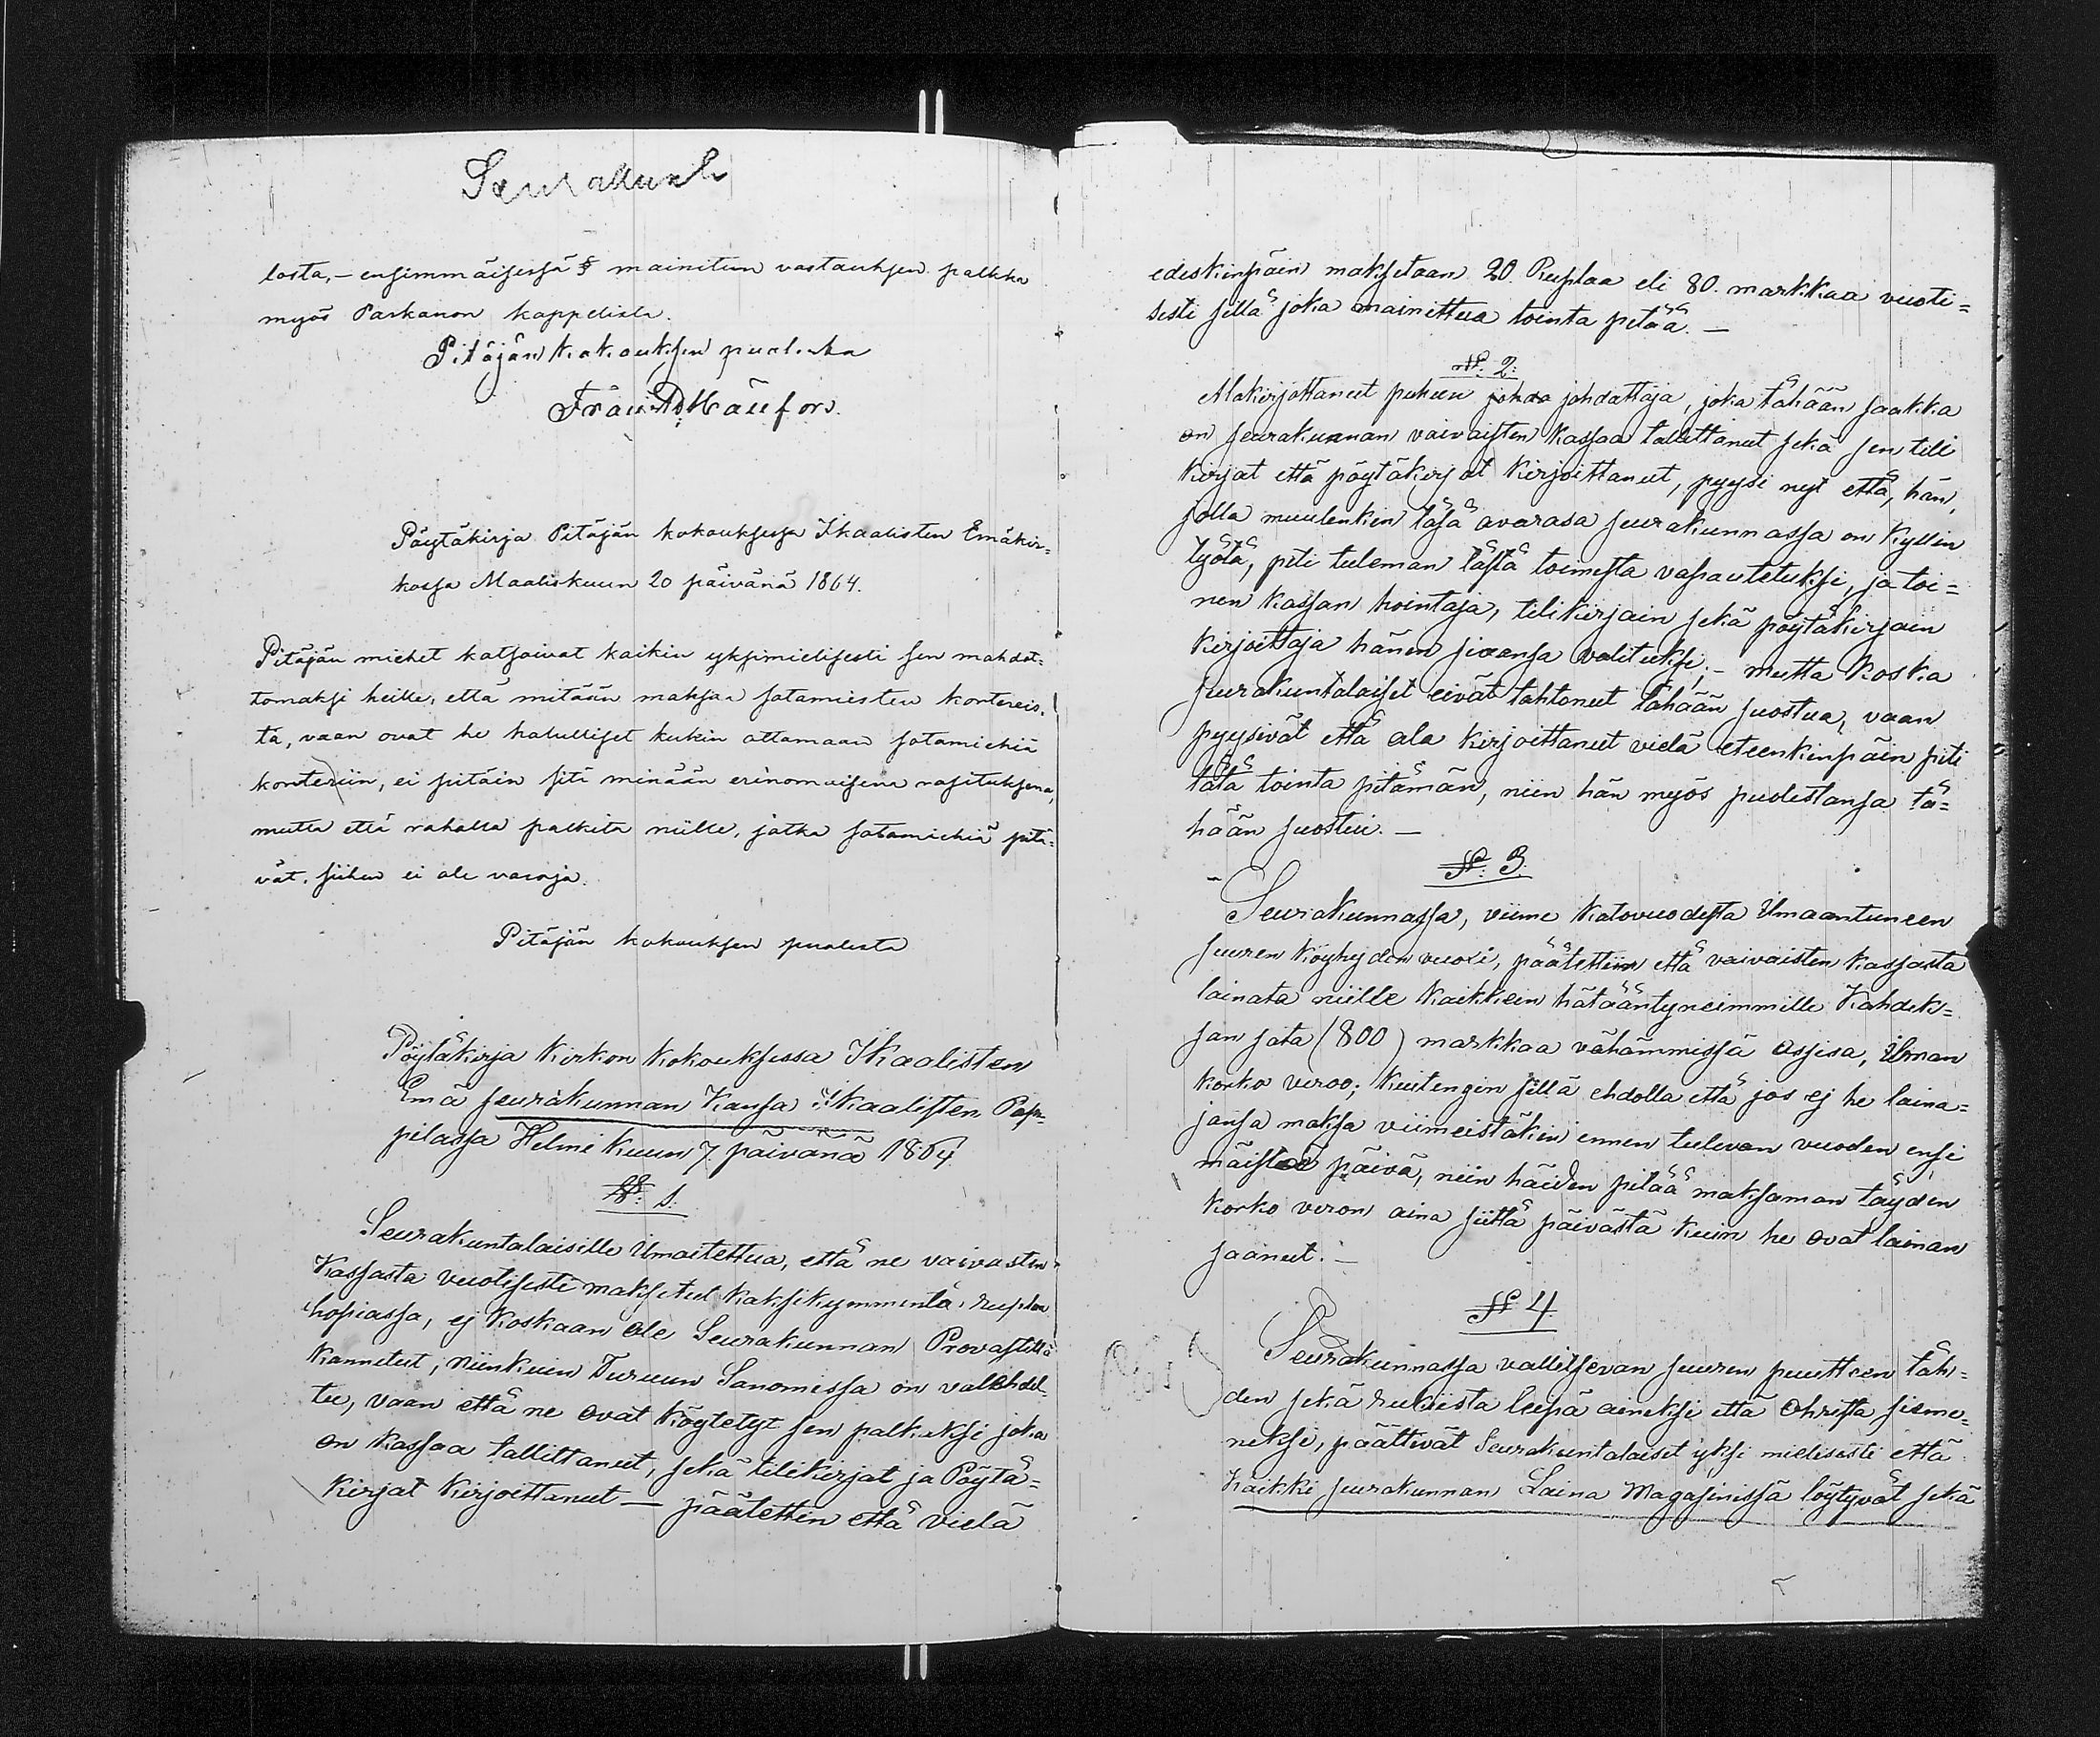 Seurakunta
losta, – ensimmäisessä § mainitun vastauksen palkka
myös Parkanon kappelista.
Pitäjän kokouksen puolesta
Pöytäkirja Pitäjän kokouksessa Ikaalisten Emäkir=
kossa Maaliskuun 20 päivänä 1864.
Pitäjän miehet katsoivat kaikin yksimielisesti sen mahdot=
tomaksi heille, että mitään maksaa sotamiesten konteeris,
ta, vaan ovat he halulliset kukin ottamaan sotamiehiä
konteriin, ei pitäin sitä minään erinomaisena rasituksena,
mutta että rahalla palkita niille, jotka sotamiehiä pitä=
vät, siihen ei ole varoja.
Pitäjän kokouksen puolesta
Pöytäkirja Kirkon kokouksessa Ikaalisten
Emä seurakunnan Kansa Ikaalisten Pap=
pilassa Helmi Kuun 7 päivänä 1864
§: 1.
Seurakuntalaisille Ilmoitettua, että ne vaivasten
Kassasta vuotisesti maksetut Kaksikymmentä ruplaa
hopiassa, ej Koskaan ole Seurakunnan Provastilta
Kannetut, niinkuin Turuun Sanomissa on valehdel
tu, vaan että ne ovat Köytetyt sen palkaksi joka
on Kassaa tallittanut, sekä tilikirjat ja Pöytä=
kirjat Kirjoittanut – päätettin että vielä
edeskinpäin maksetaan 20 Ruplaa eli 80. markkaa vuoti=
sesti sillä joka mainittua tointa pitää. –
§: 2:
Alakirjottanut puhen johda johdattaja, joka tähään saakka
on seurakunnan vaivaisten Kassaa talittanut sekä sen tili
Kirjat että pöytäkirjat Kirjoittanut, pyysi nyt että, hän,
jolla muulenkin täsä avarasa seurakunnassa on Kyllin
työtä, piti tuleman tästä toimesta vapautetuksi, ja toi=
nen Kassan hointaja, tilikirjain sekä pöytäkirjain
Kirjoittaja hänen siaansa valituksi, – mutta Koska
seurakuntalaiset eivät tahtonut tähään suostua, vaan
pyysivät että ala kirjoittanut vielä eteenkinpäin piti
tätä tointa pitämän, niin hän myös puolestansa tä=
hään suostui. –
§: 3.
Seurakunnassa, viime Katovuodesta Ilmaantuneen
suuren Köyhyden vuoxi, päätettiin että vaivaisten Kassasta
lainata niille Kaikkein hätääntyneimmille Kahdek=
san sata (800) markkaa vähämmissä Ossisa, Ilman
korko veroo; Kuitengin sillä ehdolla että jos ej he laina=
jansa maksa viimeistäkin ennen tulevan vuoden ensi
mäistä päivä, niin häiden pitää maksaman täyden
korko veron aina siittä päivästä Kuin he ovat lainan
saanut. –
§ 4.
Seurakunnassa vallitsevan suuren puutteen täh=
den sekä rukiista leepä aineksi että Ohrista sieme=
neksi, päättivät Seurakuntalaiset yksi mielisesti että
Kaikki seurakunnan Laina Magasinissa löytyvät sekä